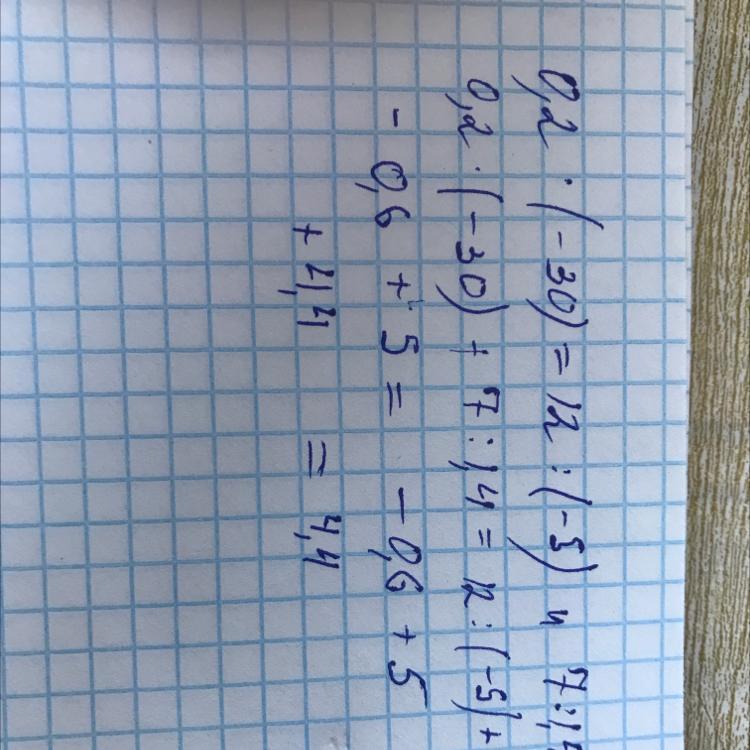 0,2 · (-30) = 12 : (-5) и 7 : 1,4
0,2 · (-30) + 7 : 1,4 = 12 : (-5) +
- 0,6 + 5 = - 0,6 + 5
+ 4,4 = 4,4